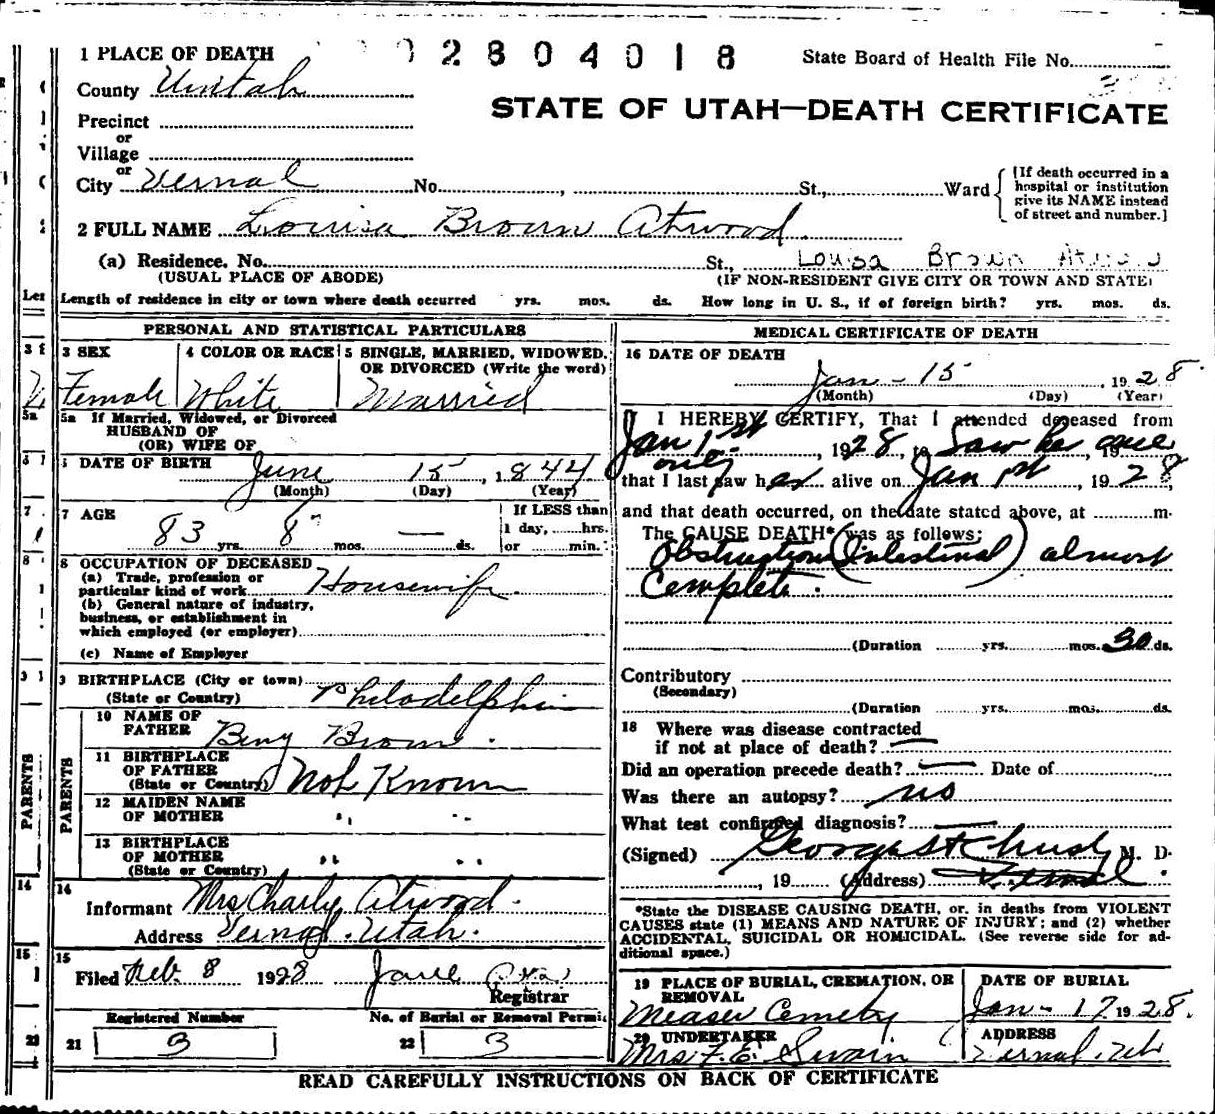 1 PLACE OF DEATH
2804018
State Board of Health File No.
County Uintah
STATE OF UTAH—DEATH CERTIFICATE
Precinct
or
Village
or
City Vernal No. , St., Ward
[If death occurred in a hospital or institution give its NAME instead of street and number.]
2 FULL NAME Louisa Brown Atwood
(a) Residence. No. St., Louisa Brown Atwood
(USUAL PLACE OF ABODE) (IF NON-RESIDENT GIVE CITY OR TOWN AND STATE)
Length of residence in city or town where death occurred yrs. mos. ds. How long in U. S., if of foreign birth? yrs. mos. ds.
PERSONAL AND STATISTICAL PARTICULARS
3 SEX
Female
4 COLOR OR RACE
White
5 SINGLE, MARRIED, WIDOWED,
OR DIVORCED (Write the word)
Married
5a If Married, Widowed, or Divorced
HUSBAND OF
(OR) WIFE OF
DATE OF BIRTH June 15, 1844
(Month) (Day) (Year)
7 AGE
83 yrs. 8 mos. — ds.
If LESS than
1 day, hrs.
or min.
8 OCCUPATION OF DECEASED
(a) Trade, profession or
particular kind of work Housewife
(b) General nature of industry,
business, or establishment in
which employed (or employer)
(c) Name of Employer
9 BIRTHPLACE (City or town)
(State or Country) Philadelphia
PARENTS
10 NAME OF
FATHER Benj Brown.
11 BIRTHPLACE
OF FATHER
(State or Country) Not Known
12 MAIDEN NAME
OF MOTHER " "
13 BIRTHPLACE
OF MOTHER
(State or Country) " "
14
Informant Mrs Charly Atwood.
Address Vernal. Utah.
15
Filed Feb. 8 1928
Registrar
Registered Number
21 3
No. of Burial or Removal Permit
22 3
MEDICAL CERTIFICATE OF DEATH
16 DATE OF DEATH
Jan - 15 , 1928
(Month) (Day) (Year)
I HEREBY CERTIFY, That I attended deceased from
Jan 1st , 1928, to Saw her once, 19
only
that I last saw her alive on Jan 1st, 1928,
and that death occurred, on the date stated above, at m.
The CAUSE DEATH* was as follows:
Obstruction (Intestinal) almost
Complete.
(Duration yrs. mos. 30 ds.
Contributory
(Secondary)
(Duration yrs. mos. ds.
18 Where was disease contracted
if not at place of death? —
Did an operation precede death? — Date of
Was there an autopsy? no
What test confirmed diagnosis? —
(Signed) M. D.
, 19 (Address) Vernal.
*State the DISEASE CAUSING DEATH, or, in deaths from VIOLENT
CAUSES state (1) MEANS AND NATURE OF INJURY; and (2) whether
ACCIDENTAL, SUICIDAL OR HOMICIDAL. (See reverse side for ad-
ditional space.)
19 PLACE OF BURIAL, CREMATION, OR
REMOVAL
Measer Cemetry
DATE OF BURIAL
Jan - 17 1928.
20 UNDERTAKER
Mrs F. E. Swain
ADDRESS
Vernal. Ut
READ CAREFULLY INSTRUCTIONS ON BACK OF CERTIFICATE